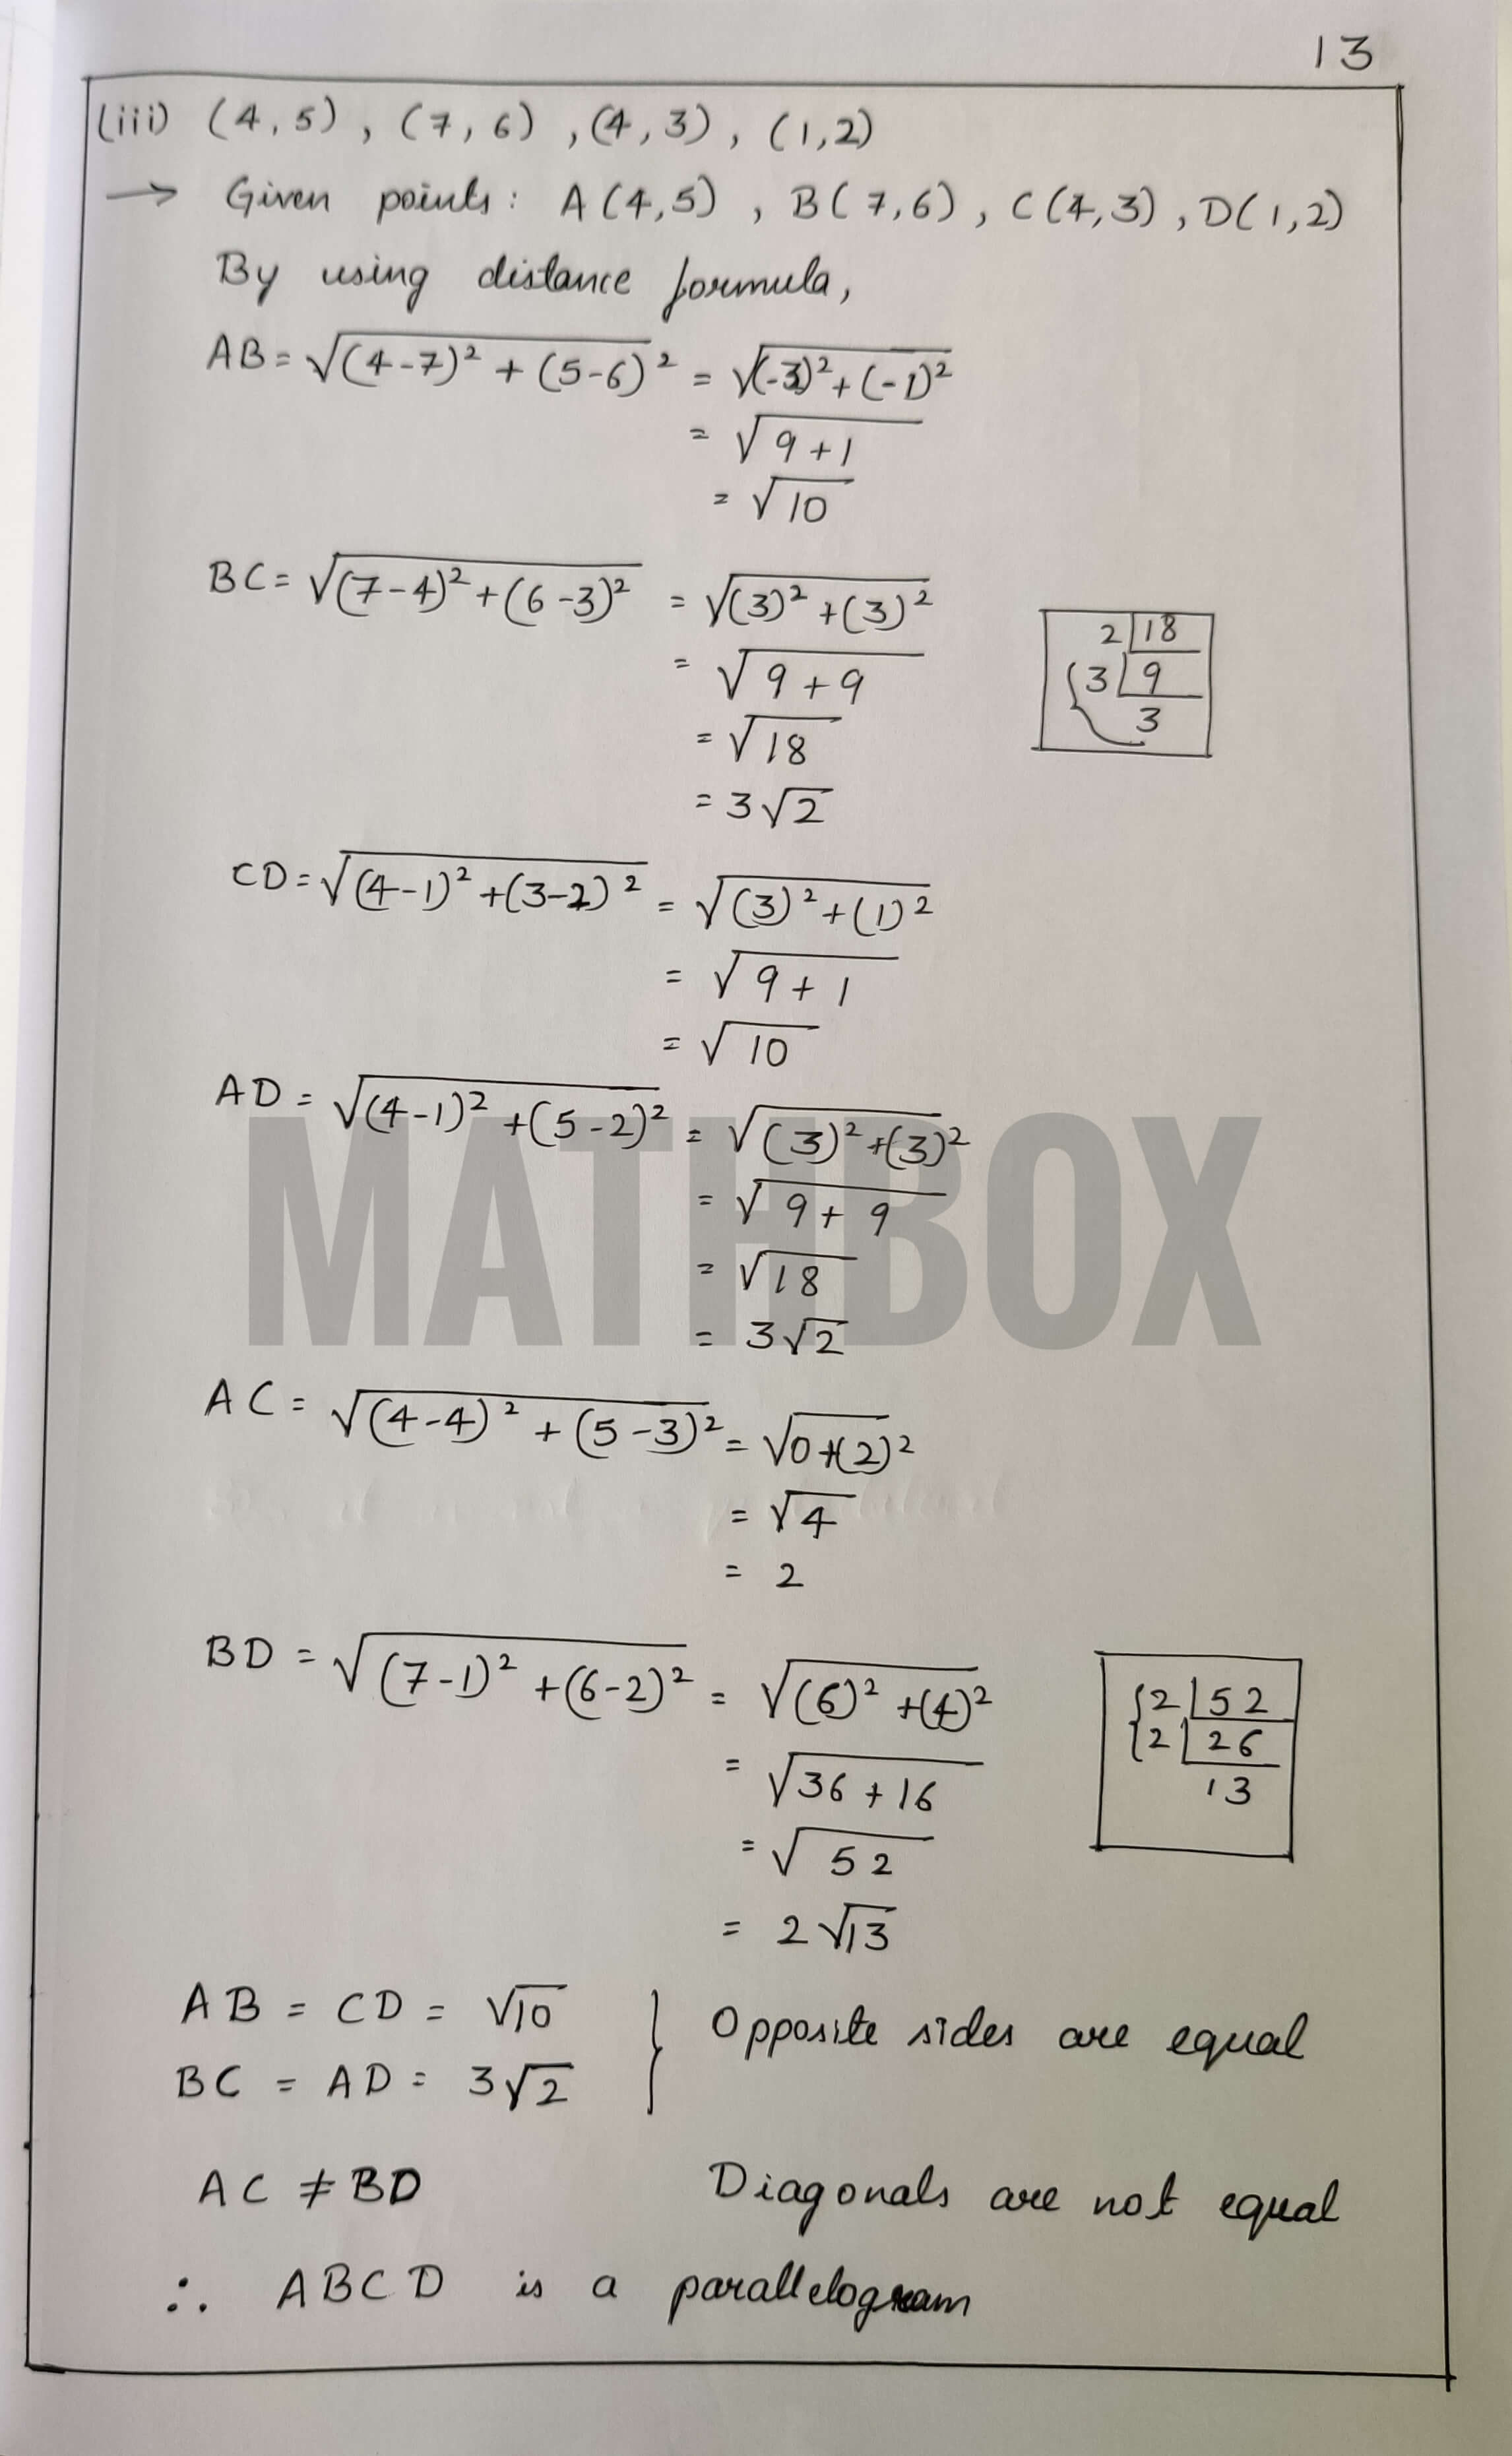 13
(iii) (4,5), (7,6), (4,3), (1,2)
→ Given points: A(4,5), B(7,6), C(4,3), D(1,2)
By using distance formula,
AB = √(4-7)² + (5-6)² = √(-3)² + (-1)²
= √9+1
= √10
BC = √(7-4)² + (6-3)² = √(3)² + (3)²
= √9+9
= √18
= 3√2
2 | 18
3 | 9
3
CD = √(4-1)² + (3-2)² = √(3)² + (1)²
= √9+1
= √10
AD = √(4-1)² + (5-2)² = √(3)² + (3)²
= √9+9
= √18
= 3√2
MATHBOX
AC = √(4-4)² + (5-3)² = √0+(2)²
= √4
= 2
BD = √(7-1)² + (6-2)² = √(6)² + (4)²
= √36+16
= √52
= 2√13
2 | 52
2 | 26
13
AB = CD = √10 } Opposite sides are equal
BC = AD = 3√2
AC ≠ BD Diagonals are not equal
∴ ABCD is a parallelogram